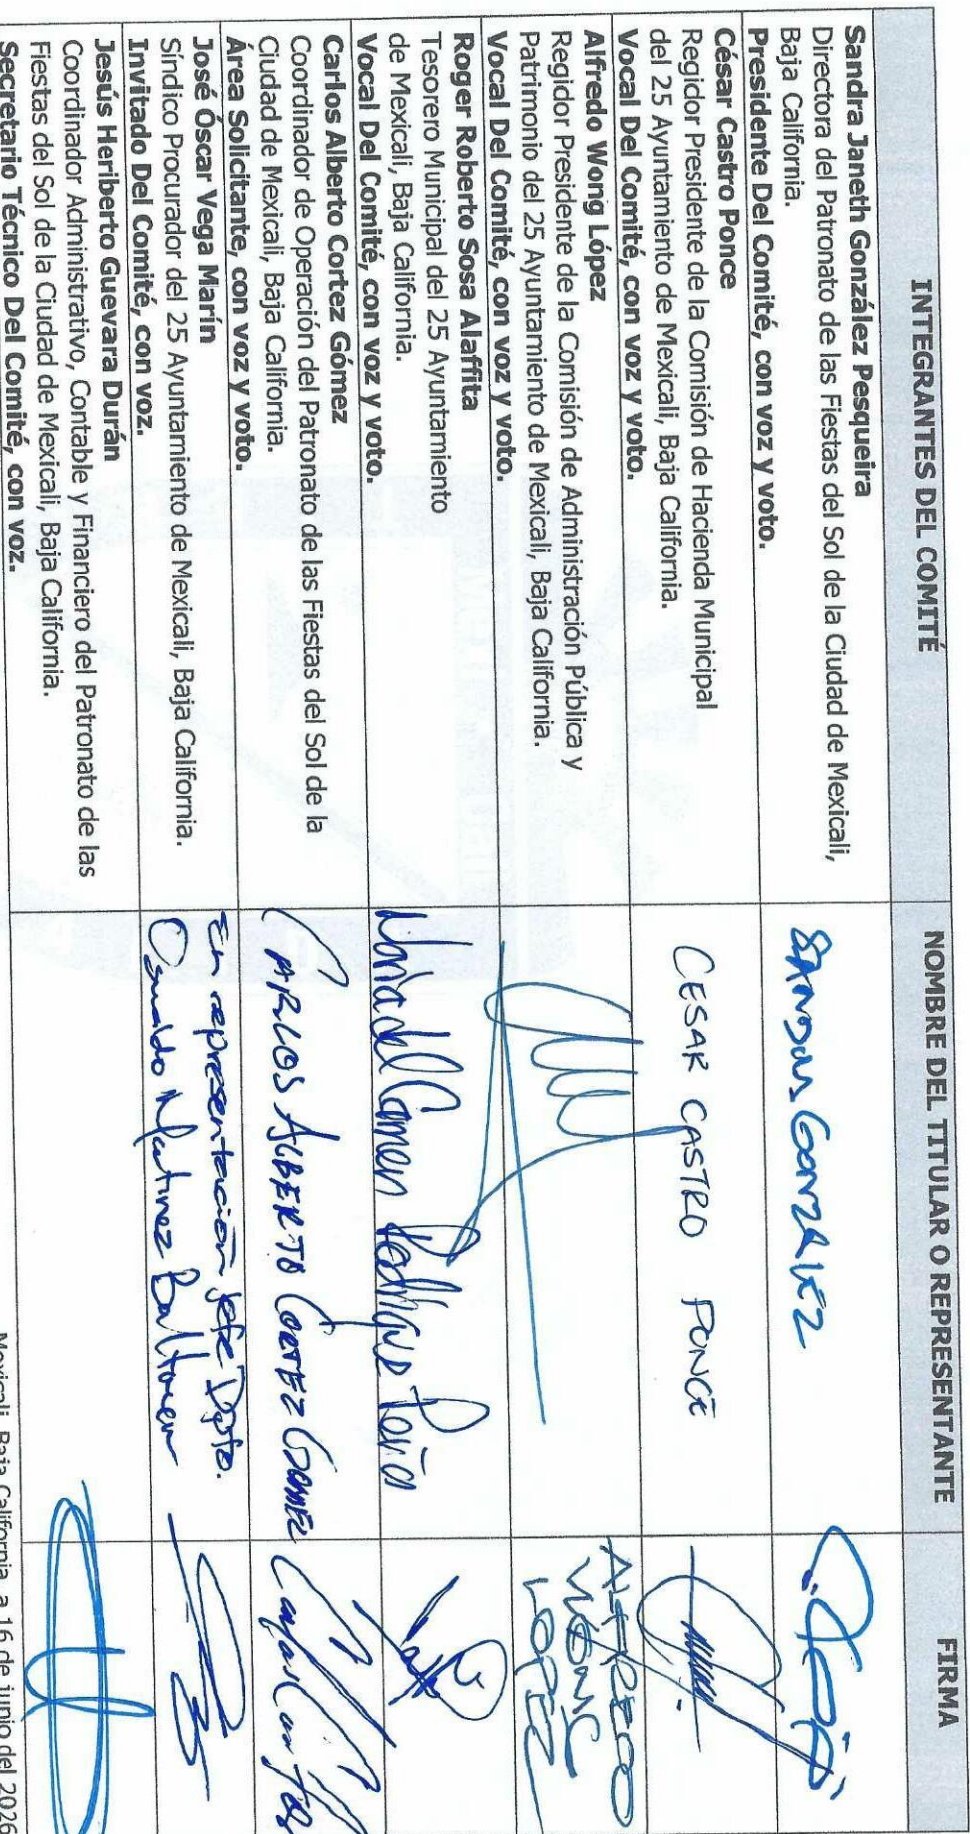 INTEGRANTES DEL COMITÉ
NOMBRE DEL TITULAR O REPRESENTANTE
FIRMA
Sandra Janeth González Pesqueira
Directora del Patronato de las Fiestas del Sol de la Ciudad de Mexicali,
Baja California.
Presidente Del Comité, con voz y voto.
SANDRA GONZALEZ
César Castro Ponce
Regidor Presidente de la Comisión de Hacienda Municipal
del 25 Ayuntamiento de Mexicali, Baja California.
Vocal Del Comité, con voz y voto.
CESAR CASTRO PONCE
Alfredo Wong López
Regidor Presidente de la Comisión de Administración Pública y
Patrimonio del 25 Ayuntamiento de Mexicali, Baja California.
Vocal Del Comité, con voz y voto.
ALFREDO
WONG
LOPEZ
Roger Roberto Sosa Alaffita
Tesorero Municipal del 25 Ayuntamiento
de Mexicali, Baja California.
Vocal Del Comité, con voz y voto.
Maria del Carmen
Carlos Alberto Cortez Gómez
Coordinador de Operación del Patronato de las Fiestas del Sol de la
Ciudad de Mexicali, Baja California.
Área Solicitante, con voz y voto.
CARLOS ALBERTO CORTEZ GOMEZ
José Óscar Vega Marín
Síndico Procurador del 25 Ayuntamiento de Mexicali, Baja California.
Invitado Del Comité, con voz.
En representación Jefe Depto.
Osvaldo Martinez
Jesús Heriberto Guevara Durán
Coordinador Administrativo, Contable y Financiero del Patronato de las
Fiestas del Sol de la Ciudad de Mexicali, Baja California.
Secretario Técnico Del Comité, con voz.
Mexicali, Baja California, a 16 de junio del 2026